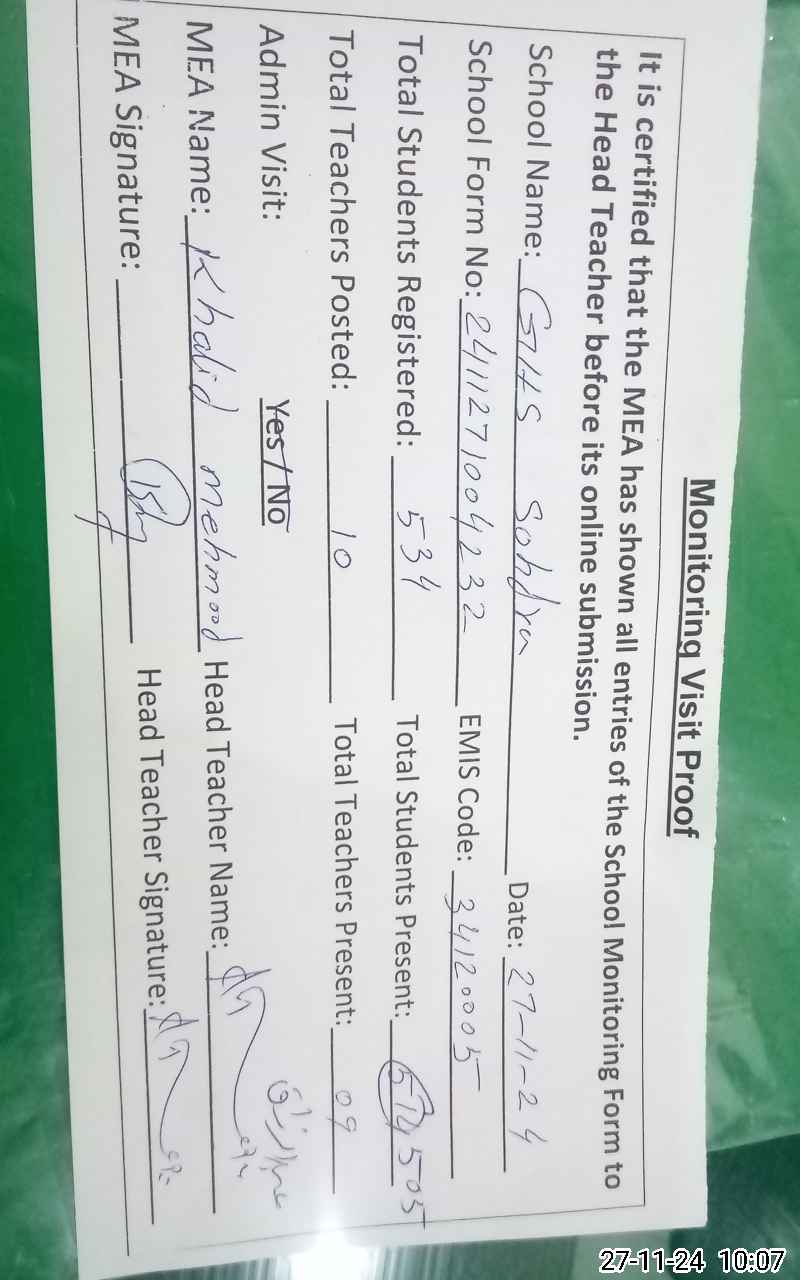 Monitoring Visit Proof
It is certified that the MEA has shown all entries of the School Monitoring Form to
the Head Teacher before its online submission.
School Name: GHS Sohdra Date: 27-11-24
School Form No: 2411271004232 EMIS Code: 34120005
Total Students Registered: 534 Total Students Present: 505
Total Teachers Posted: 10 Total Teachers Present: 09
Admin Visit: Yes / No
MEA Name: Khalid mehmood Head Teacher Name:
MEA Signature: Head Teacher Signature:
27-11-24 10:07